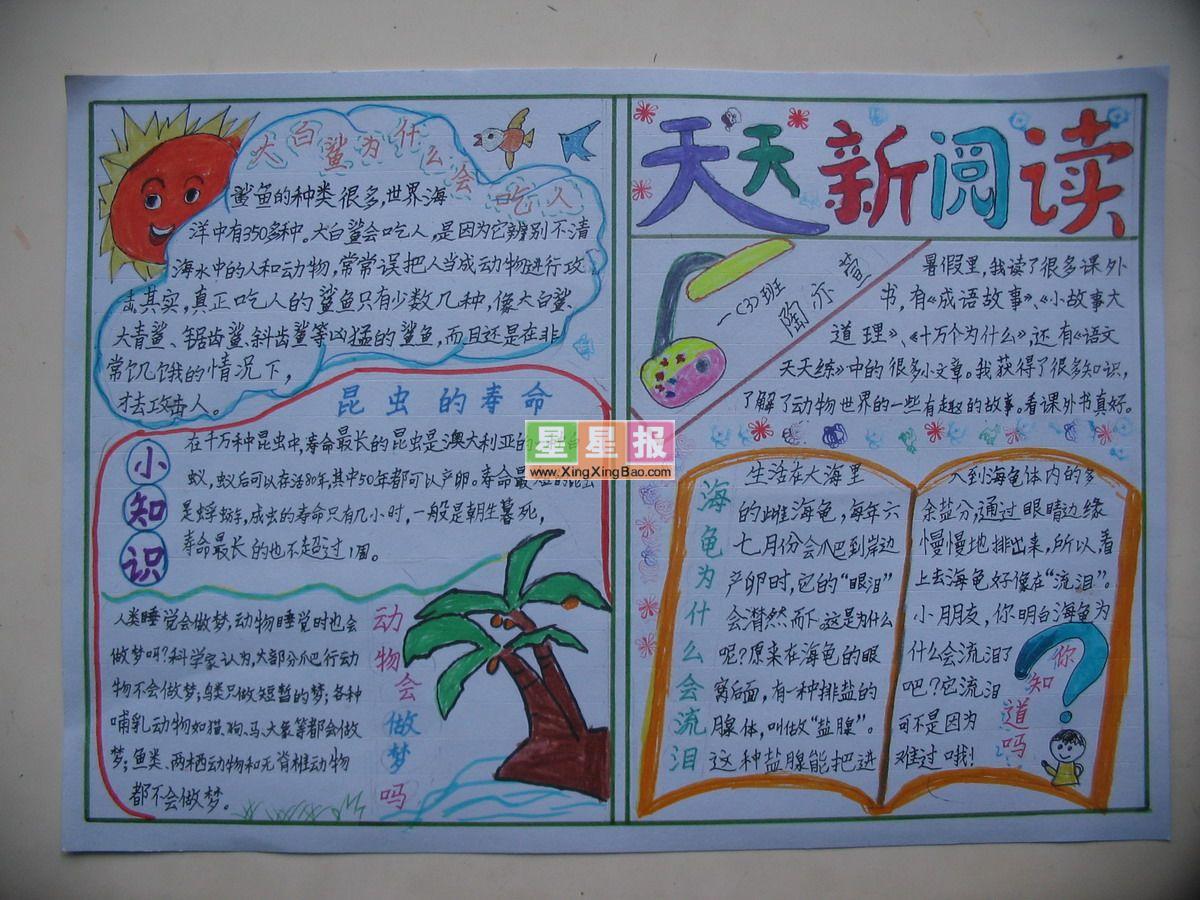 大白鲨为什么会吃人
鲨鱼的种类很多,世界海
洋中有350多种。大白鲨会吃人,是因为它辨别不清
海水中的人和动物,常常误把人当成动物进行攻
击。其实,真正吃人的鲨鱼只有少数几种,像大白鲨、
大青鲨、锯齿鲨、斜齿鲨等凶猛的鲨鱼,而且还是在非
常饥饿的情况下,
才去攻击人。
昆虫的寿命
小知识
在千万种昆虫中,寿命最长的昆虫是澳大利亚的
蚁,蚁后可以存活80年,其中50年都可以产卵。寿命最短的昆虫
是蜉蝣,成虫的寿命只有几小时,一般是朝生暮死,
寿命最长的也不超过1周。
动物会做梦吗
人类睡觉会做梦,动物睡觉时也会
做梦吗?科学家认为,大部分爬行动
物不会做梦;鸟类只做短暂的梦;各种
哺乳动物如猫、狗、马、大象等都会做
梦;鱼类、两栖动物和无脊椎动物
都不会做梦。
天天新阅读
一(3)班
陶亦萱
暑假里,我读了很多课外
书,有《成语故事》、《小故事大
道理》、《十万个为什么》,还有《语文
天天练》中的很多小文章。我获得了很多知识,
了解了动物世界的一些有趣的故事。看课外书真好。
海龟为什么会流泪
生活在大海里
的雌海龟,每年六
七月份会爬到岸边
产卵时,它的“眼泪”
会潸然而下。这是为什么
呢?原来在海龟的眼
窝后面,有一种排盐的
腺体,叫做“盐腺”。
这种盐腺能把进
入到海龟体内的多
余盐分,通过眼睛边缘
慢慢地排出来,所以看
上去海龟好像在“流泪”。
小朋友,你明白海龟为
什么会流泪了
吧?它流泪
可不是因为
难过哦!
你知道吗
星星报
www.XingXingBao.com